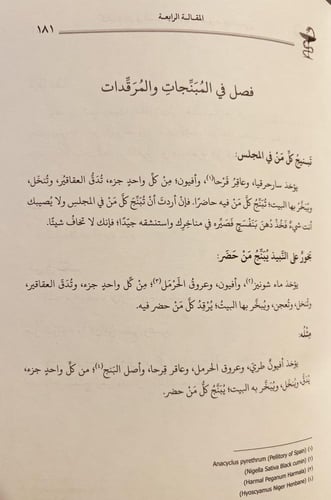 المقالة الرابعة
١٨١
فصل في المُبَنِّجاتِ والمُرَقِّدات
تَبنيجُ كلِّ مَنْ في المجلس:
يؤخذ سارحرقيا، وعاقِر قَرْحا(١)، وأفيون؛ مِنْ كلِّ واحدٍ جزء، تُدَقُّ العقاقيُر، وتُنخَل،
ويُبخَّر بها البيت؛ تُبَنِّجُ كلَّ مَنْ فيه حاضرًا. فإنْ أردتَ أنْ تُبَنِّجَ كلَّ مَنْ في المجلسِ ولا يُصيبك
أنت شيءٌ فخُذْ دُهنَ بَنَفْسَجٍ فصَيِّره في مناخِرِك واستنشقه جيِّدًا؛ فإنك لا تخافُ شيئًا.
بَخورٌ على النَّبيذِ يُبَنِّجُ مَنْ حَضَر:
يؤخذ ماء شونيز(٢)، وأفيون، وعروق الحَرْمَل(٣)؛ مِنْ كلِّ واحدٍ جزء، وتُدَق العقاقير،
وتُنخل، وتُعجن، ويُبخَّر بها البيتُ؛ يُرْقِدُ كلَّ مَنْ حضر فيه.
مِثْلُه:
يؤخذ أفيونٌ طريّ، وعروق الحرمل، وعاقر قرحا، وأصل البَنج(٤)؛ من كلِّ واحدٍ جزء.
يُدَقُّ ويُنخَل، ويُبخَّر به البيت؛ يُبَنِّج كلَّ مَنْ حضر.
(١) Anacyclus pyrethrum (Pellitory of Spain)
(٢) (Nigella Sativa Black cumin)
(٣) (Harmal Peganum Harmala)
(٤) (Hyoscyamus Niger Henbane)